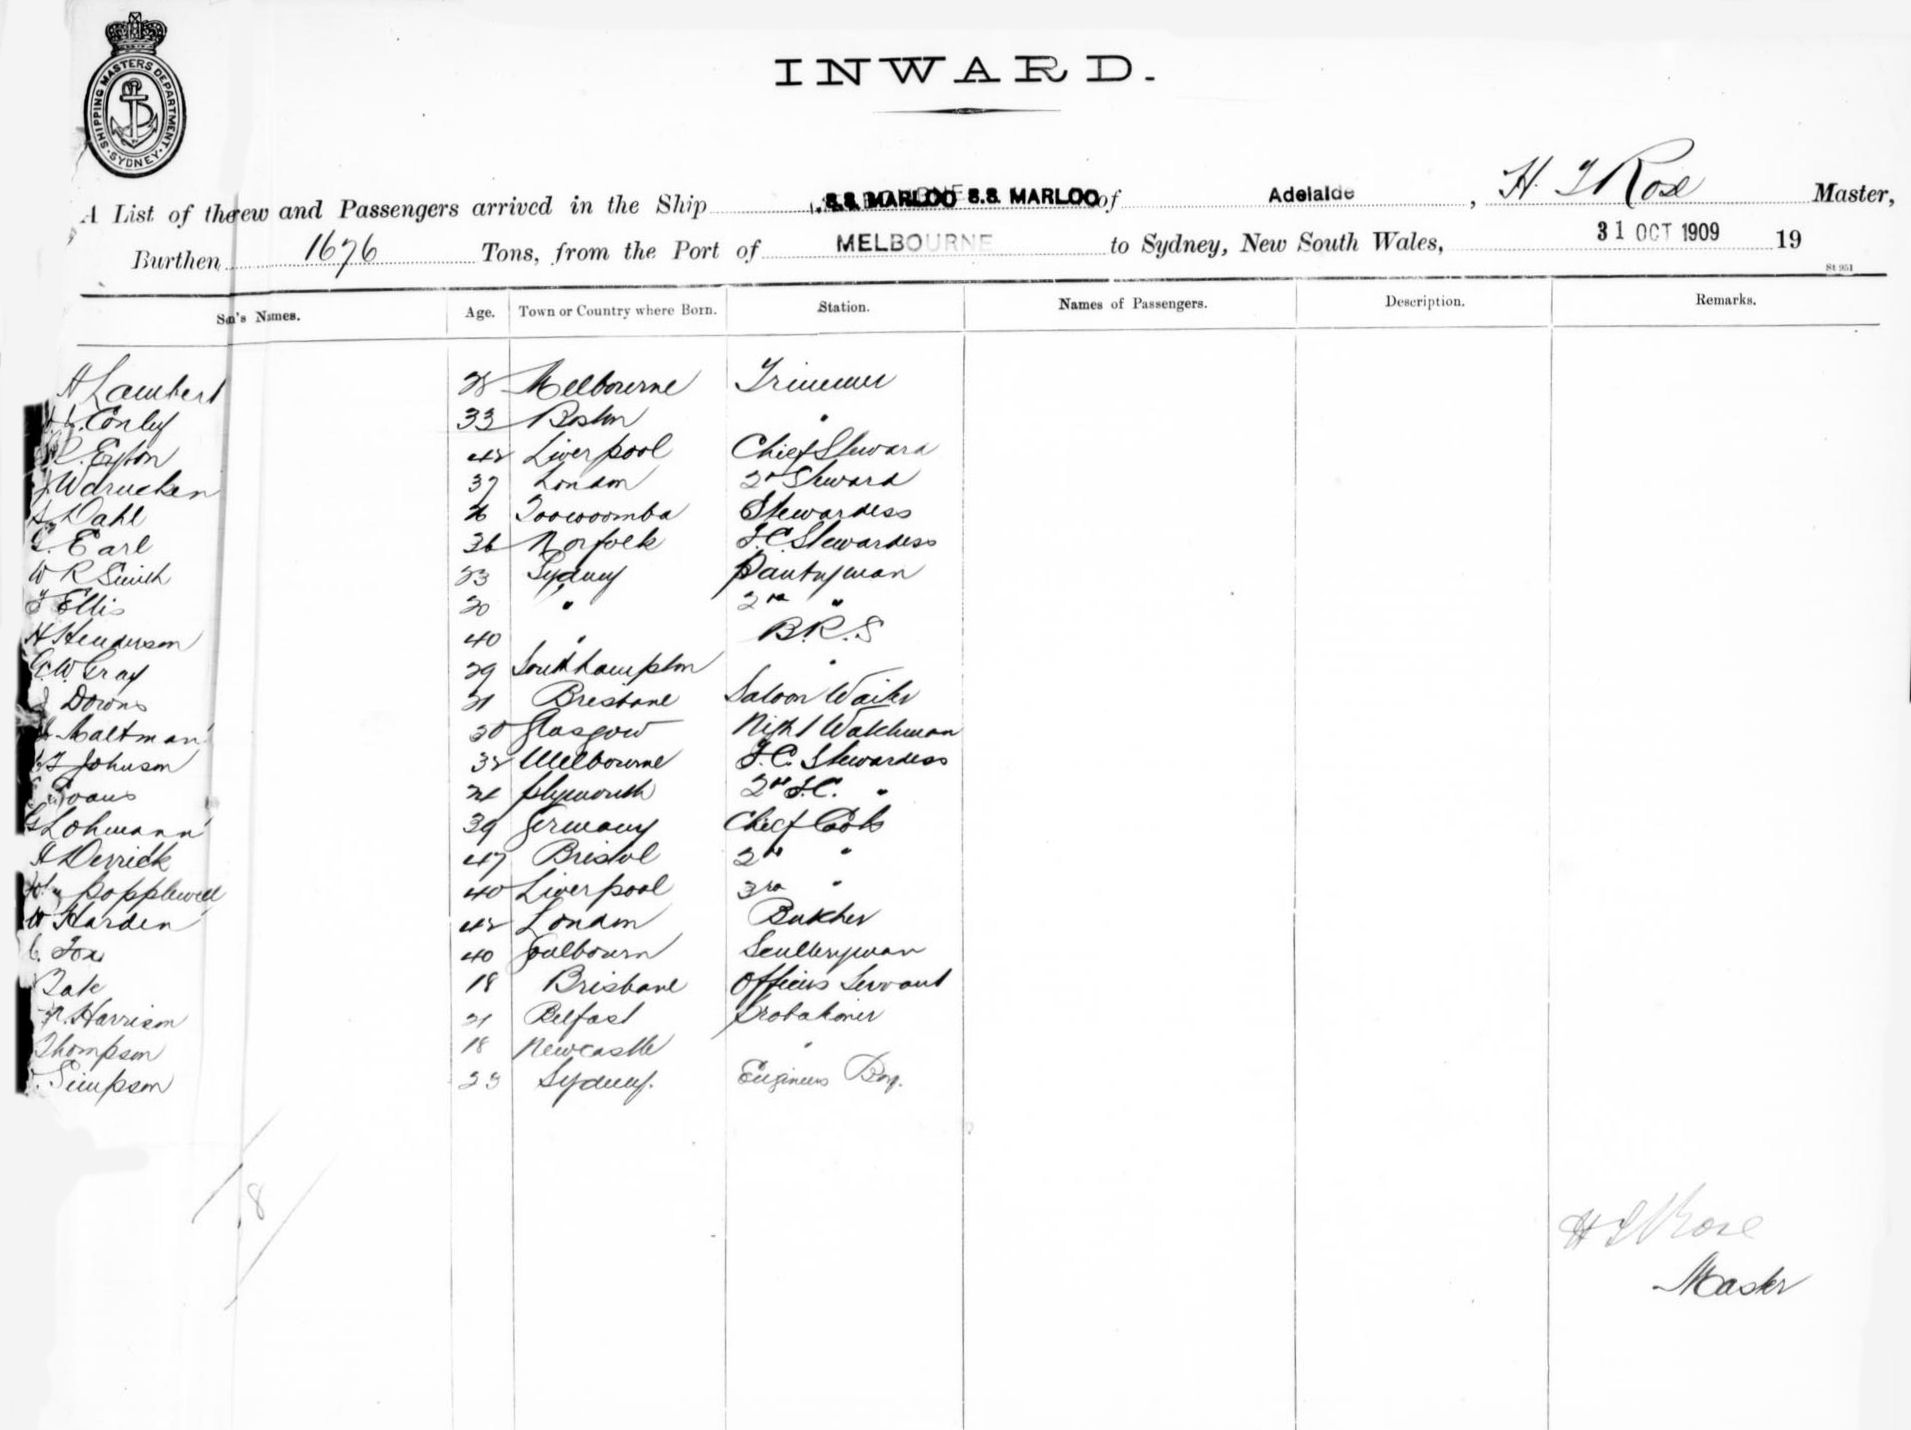 SHIPPING MASTERS DEPARTMENT. SYDNEY.
INWARD.
A List of the rew and Passengers arrived in the Ship S.S. MARLOO S.S. MARLOO of Adelaide, H. Rose Master,
Burthen 1676 Tons, from the Port of MELBOURNE to Sydney, New South Wales, 31 OCT 1909 19
St 951
Names. Age. Town or Country where Born. Station. Names of Passengers. Description. Remarks.
A Lambert 28 Melbourne Trimmer
Conley 33 Boston "
Eyton 42 Liverpool Chief Steward
37 London 2nd Steward
Dahl Toowoomba Stewardess
Earl 36 Norfolk F.C. Stewardess
W R Smith 23 Sydney Pantryman
Ellis 20 " 2nd "
H Henderson 40 " B.R.S
G.W. Gray 29 Southampton "
Downs 21 Brisbane Saloon Waiter
Maltman 30 Glasgow Night Watchman
Johnson 32 Melbourne F.C. Stewardess
Evans 21 Plymouth 2nd S.C. "
Lohmann 39 Germany Chief Cook
A Derrick 47 Bristol 2nd "
Popplewell 40 Liverpool 3rd "
W Harden 42 London Butcher
C. Fox 40 Goulbourn Sculleryman
Tate 18 Brisbane Officers Servant
Harrison 21 Belfast Probationer
Thompson 18 Newcastle "
Simpson 23 Sydney. Engineers Boy.
8
H Rose
Master